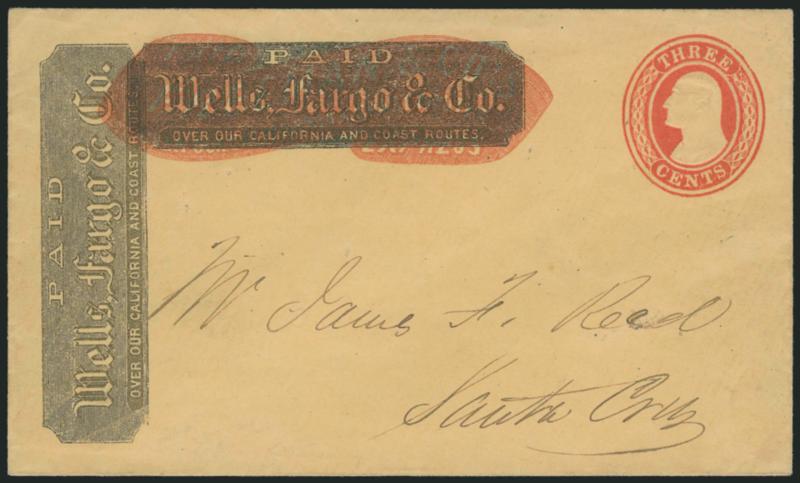 PAID
Wells, Fargo & Co.
OVER OUR CALIFORNIA AND COAST ROUTES.
PAID
Wells, Fargo & Co.
OVER OUR CALIFORNIA AND COAST ROUTES.
THREE
CENTS
Mr James F. Reed
Santa Cruz